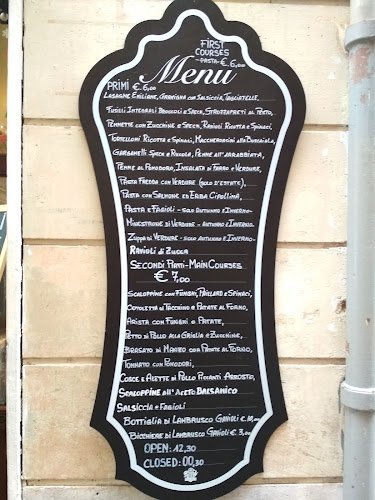 FIRST
COURSES
-PASTA- €.6,00
Menu
PRIMI €.6,00
LASAGNE EMILIANE, GRAMIGNA CON SALSICCIA, TAGLIATELLE,
FUSILLI INTEGRALI BROCCOLI E SPECK, STROZZAPRETI AL PESTO,
PENNETTE CON ZUCCHINE E SPECK, RAVIOLI RICOTTA E SPINACI,
TORTELLONI RICOTTA E SPINACI, MACCHERONCINI ALLA BOSCAIOLA,
GARGANELLI SPECK E RUCOLA, PENNE ALL'ARRABBIATA,
PENNE AL POMODORO, INSALATA DI FARRO E VERDURE,
PASTA FREDDA CON VERDURE (SOLO D'ESTATE),
PASTA CON SALMONE ED ERBA CIPOLLINA,
PASTA E FAGIOLI - SOLO AUTUNNO E INVERNO-
MINESTRONE DI VERDURE - AUTUNNO E INVERNO-
ZUPPA DI VERDURE - SOLO AUTUNNO E INVERNO-
RAVIOLI DI ZUCCA
SECONDI PIATTI-MAIN COURSES
€ 7,00
SCALOPPINE CON FUNGHI, PAILLARD E SPINACI,
COTOLETTA DI TACCHINO E PATATE AL FORNO,
ARISTA CON FUNGHI O PATATE,
PETTO DI POLLO ALLA GRIGLIA E ZUCCHINE,
BRASATO DI MANZO CON PATATE AL FORNO,
TONNATO CON POMODORI,
COSCE E ALETTE DI POLLO PICCANTI ARROSTO,
SCALOPPINE ALL'ACETO BALSAMICO
SALSICCIA E FAGIOLI
BOTTIGLIA DI LAMBRUSCO GAVIOLI €.10,00
BICCHIERE DI LAMBRUSCO GAVIOLI €.3,00
OPEN: 12,30
CLOSED: 00,30